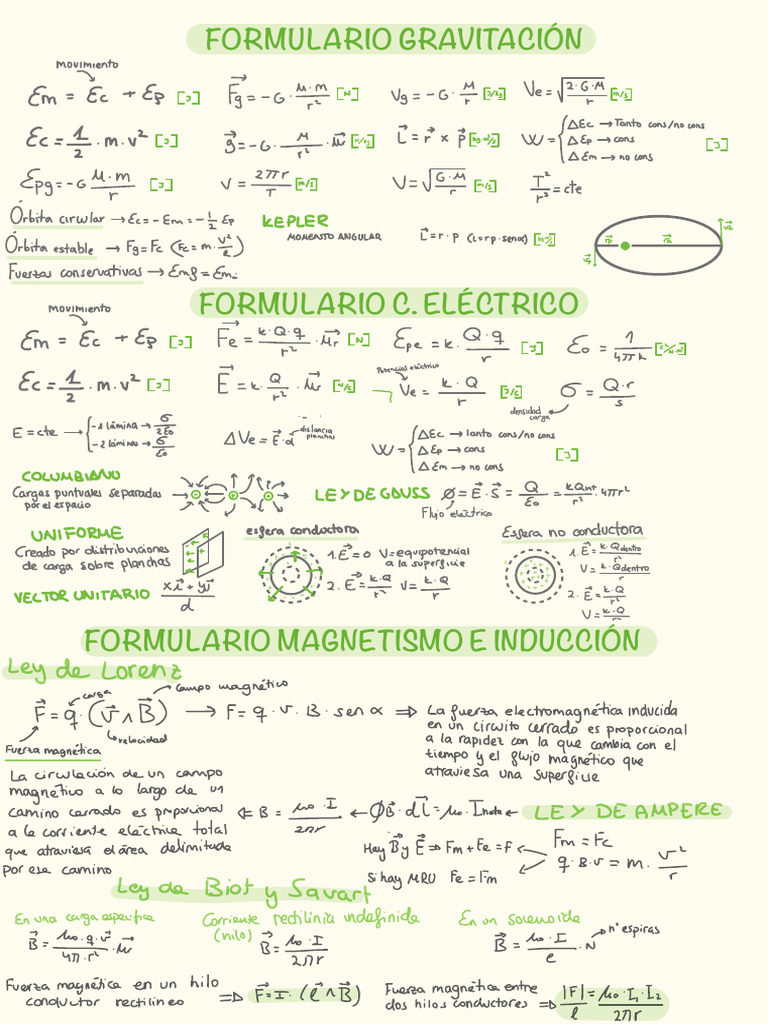 FORMULARIO GRAVITACIÓN
movimiento
Em = Ec + Ep [J]
F⃗g = -G · M·m/r² [N]
Vg = -G · M/r [J/kg]
Ve = √(2·G·M/r) [m/s]
Ec = 1/2 · m · v² [J]
g⃗ = -G · M/r² · u⃗ [N/kg]
L⃗ = r⃗ x p⃗ [kg·m²/s]
W = { ΔEc → Tanto cons/no cons
ΔEp → cons
ΔEm → no cons
[J]
Epg = -G M·m/r [J]
v = 2πr/T [m/s]
V = √(G·M/r) [m/s]
T²/r³ = cte
Órbita cirular → Ec = -Em = -1/2 Ep
KEPLER
MOMENTO ANGULAR
L⃗ = r · p (L = r p · senα)
Órbita estable → Fg = Fc (Fc = m · v²/l)
Fuerzas conservativas → Emf = Emi
rp ra
vp va
FORMULARIO C. ELÉCTRICO
movimiento
Em = Ec + Ep [J]
F⃗e = k·Q·q/r² · u⃗r [N]
Epe = k · Q·q/r [J]
Eo = 1/4πk
Ec = 1/2 · m · v² [J]
E⃗ = k · Q/r² · u⃗r [N/C]
Potencial eléctrico
Ve = k·Q/r [J/C]
σ = Q·r/s
densidad carga
E = cte → { -1 lámina → σ/2Eo
-2 láminas → σ/Eo
ΔVe = E⃗·d → distancia planchas
W = { ΔEc → Tanto cons/no cons
ΔEp → cons
ΔEm → no cons
[J]
COLUMBIANO
Cargas puntuales separadas
por el espacio
LEY DE GAUSS Ø = E⃗ · S⃗ = Q/Eo = kQint/r² · 4πr²
Flujo eléctrico
UNIFORME
Creado por distribuciones
de carga sobre planchas
esfera conductora
1. E⃗ = 0 V = equipotencial
a la superficie
2. E⃗ = k·Q/r² V = k·Q/r
Esfera no conductora
1. E⃗ = k·Qdentro/r²
V = k·Qdentro/r
2. E⃗ = k·Q/r²
V = k·Q/r
VECTOR UNITARIO xi⃗ + yj⃗/d
FORMULARIO MAGNETISMO E INDUCCIÓN
Ley de Lorenz
carga
campo magnético
F⃗ = q · (v⃗ ∧ B⃗) → F = q · v · B · sen α ⇒
velocidad
Fuerza magnética
La fuerza electromagnética inducida
en un circuito cerrado es proporcional
a la rapidez con la que cambia con el
tiempo y el flujo magnético que
atraviesa una superficie
La circulación de un campo
magnético a lo largo de un
camino cerrado es proporcional
a la corriente eléctrica total
que atraviesa el área delimitada
por esa camino
⇐ B = μo · I/2πr ← ØB⃗ · dl⃗ = μo · Ineta ← LEY DE AMPERE
Hay B⃗ y E⃗ ⇒ Fm + Fe = F
Si hay MRU Fe = Fm
Fm = Fc
q · B · v = m · v²/r
Ley de Biot y Savart
En una carga específica
B⃗ = μo · q · v⃗/4π · r² · u⃗
Corriente rectilínia indefinida
(hilo)
B⃗ = μo · I/2πr
En un solenoide
B⃗ = μo · I/l · N
nº espiras
Fuerza magnética en un hilo
conductor rectilíneo ⇒ F⃗ = I · (l⃗ ∧ B⃗)
Fuerza magnética entre
dos hilos conductores ⇒ |F|/l = μo · I₁ · I₂/2πr